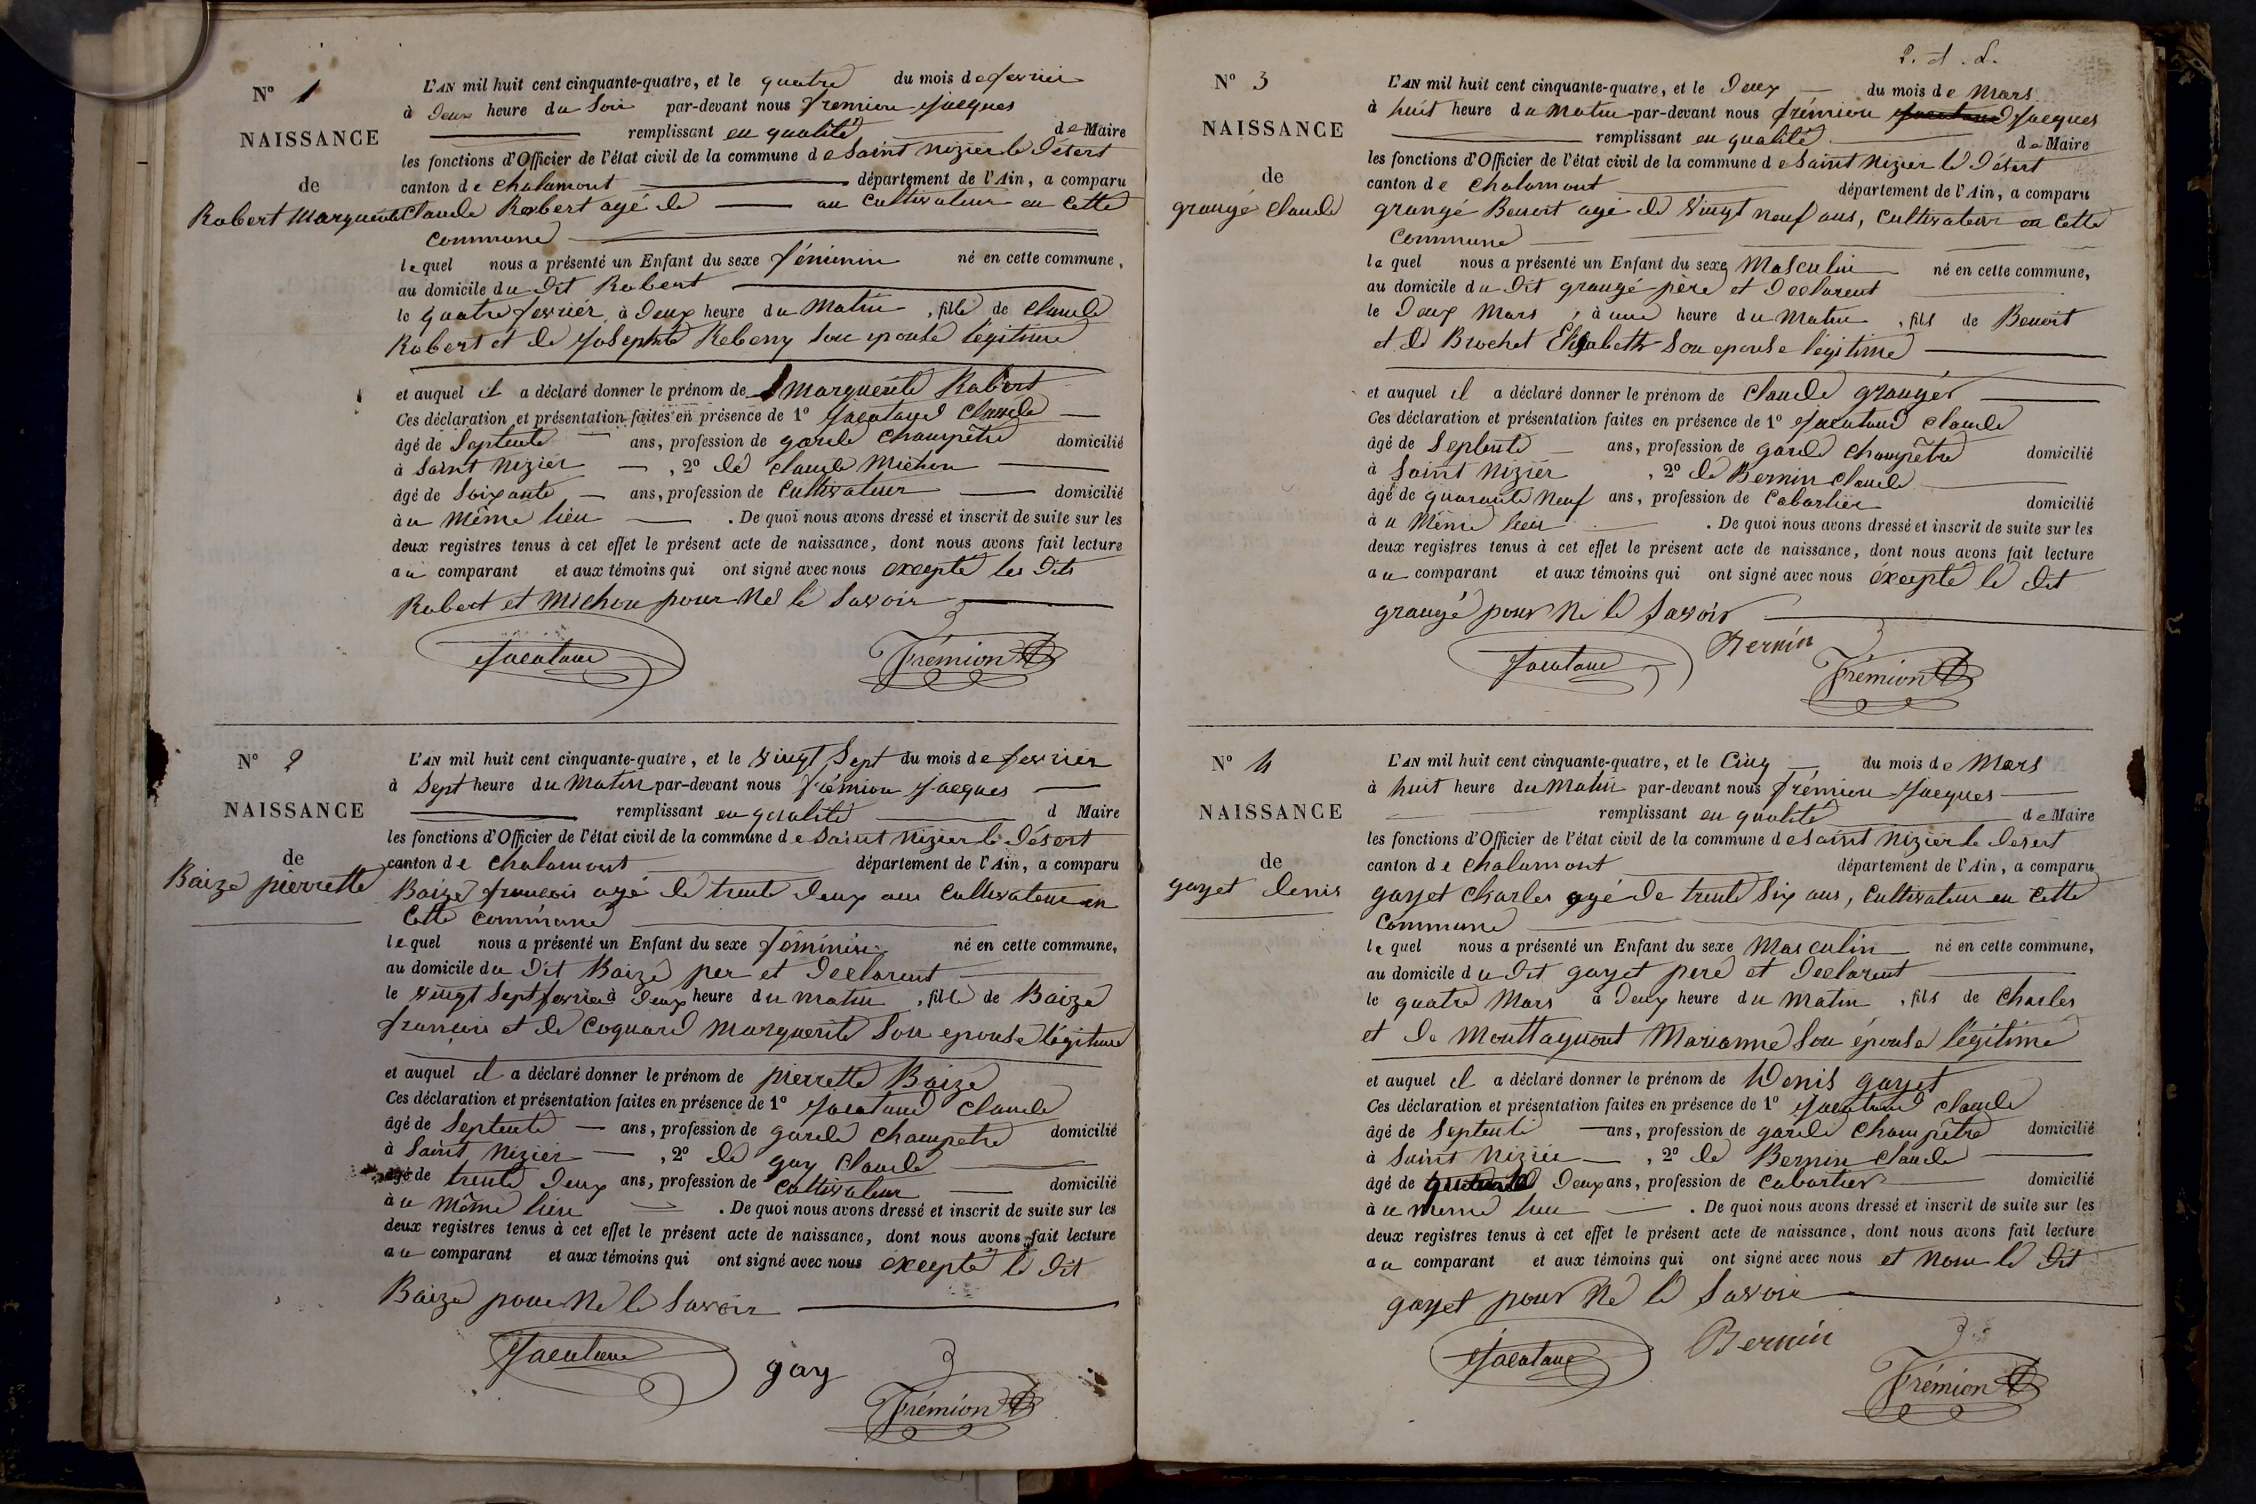 Nº 1
NAISSANCE
de
Robert Marguerite
L'AN mil huit cent cinquante-quatre, et le quatre du mois de fevrier
à deux heure du Soir par-devant nous fremion Jacques
remplissant en qualité de Maire
les fonctions d'Officier de l'état civil de la commune de Saint Nizier le Désert
canton de Chalamont département de l'Ain, a comparu
Claude Robert agé de an cultivateur en cette
commune
lequel nous a présenté un Enfant du sexe féminin né en cette commune,
au domicile du dit Robert
le quatre fevrier, à deux heure du Matin, fille de Claude
Robert et de Josephte Rebeny son epouse légitime
et auquel il a déclaré donner le prénom de Marguerite Robert
Ces déclaration et présentation faites en présence de 1º Jacataud Claude
âgé de Septente ans, profession de garde champêtre domicilié
à Saint Nizier, 2º de Claude Michon
âgé de Soixante ans, profession de Cultivateur domicilié
à u Même lieu . De quoi nous avons dressé et inscrit de suite sur les
deux registres tenus à cet effet le présent acte de naissance, dont nous avons fait lecture
au comparant et aux témoins qui ont signé avec nous excepté les dits
Robert et Michon pour Ne le Savoir
Frémion
Nº 2
NAISSANCE
de
Baize pierrette
L'AN mil huit cent cinquante-quatre, et le vingt Sept du mois de fevrier
à Sept heure du Matin par-devant nous frémion Jacques
remplissant en qualité d Maire
les fonctions d'Officier de l'état civil de la commune de Saint Nizier le Désert
canton de Chalamont département de l'Ain, a comparu
Baize francois agé de trente deux ans cultivateur en
cette commune
lequel nous a présenté un Enfant du sexe féminin né en cette commune,
au domicile du dit Baize per et declarent
le vingt Sept fevrier à deux heure du matin, fille de Baize
francois et de Coquard Marguerite Son epouse légitime
et auquel il a déclaré donner le prénom de pierrette Baize
Ces déclaration et présentation faites en présence de 1º Jacataud Claude
âgé de Septente ans, profession de garde champetre domicilié
à Saint Nizier, 2º de gay Claude
âgé de trente deux ans, profession de cultivateur domicilié
à u même lieu . De quoi nous avons dressé et inscrit de suite sur les
deux registres tenus à cet effet le présent acte de naissance, dont nous avons fait lecture
au comparant et aux témoins qui ont signé avec nous excepté le dit
Baize pour Ne le Savoir
gay
Frémion
Nº 3
NAISSANCE
de
grangé Claude
L'AN mil huit cent cinquante-quatre, et le deux du mois de Mars
à huit heure du Matin par-devant nous frémion Jacques
remplissant en qualité de Maire
les fonctions d'Officier de l'état civil de la commune de Saint Nizier le Désert
canton de Chalamont département de l'Ain, a comparu
grangé Benoit agé de vingt neuf ans, cultivateur en cette
commune
lequel nous a présenté un Enfant du sexe Masculin né en cette commune,
au domicile du dit grangé père et declarent
le deux Mars, à une heure du Matin, fils de Benoit
et de Brochet Elisabeth Son epouse légitime
et auquel il a déclaré donner le prénom de Claude granger
Ces déclaration et présentation faites en présence de 1º Jacataud Claude
âgé de Septente ans, profession de garde champêtre domicilié
à Saint Nizier, 2º de Bernin Claude
âgé de quarante Neuf ans, profession de Cabartier domicilié
à u Même lieu . De quoi nous avons dressé et inscrit de suite sur les
deux registres tenus à cet effet le présent acte de naissance, dont nous avons fait lecture
au comparant et aux témoins qui ont signé avec nous éxcepté le dit
grangé pour Ne le Savoir
Bernin
Frémion
Nº 4
NAISSANCE
de
gayet denis
L'AN mil huit cent cinquante-quatre, et le Cinq du mois de Mars
à huit heure du Matin par-devant nous frémion Jacques
remplissant en qualité de Maire
les fonctions d'Officier de l'état civil de la commune de Saint Nizier le Desert
canton de Chalamont département de l'Ain, a comparu
gayet Charles agé de trente Six ans, cultivateur en cette
commune
lequel nous a présenté un Enfant du sexe Masculin né en cette commune,
au domicile du dit gayet pere et declarent
le quatre Mars à deux heure du Matin, fils de Charles
et de Monttagnont Marianne Son épouse légitime
et auquel il a déclaré donner le prénom de Denis gayet
Ces déclaration et présentation faites en présence de 1º Jacataud Claude
âgé de Septente ans, profession de garde champêtre domicilié
à Saint Nizier, 2º de Bernin Claude
âgé de deux ans, profession de Cabartier domicilié
à u meme lieu . De quoi nous avons dressé et inscrit de suite sur les
deux registres tenus à cet effet le présent acte de naissance, dont nous avons fait lecture
au comparant et aux témoins qui ont signé avec nous et non le dit
gayet pour Ne le Savoir
Bernin
Frémion